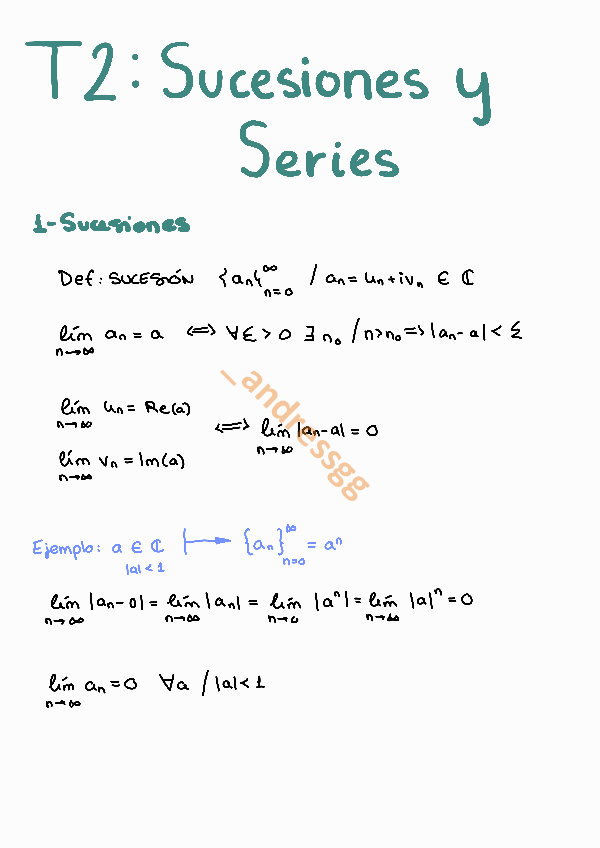 T2: Sucesiones y
Series
1-Sucesiones
Def: SUCESIÓN {aₙ{^∞_{n=0} / aₙ = uₙ + ivₙ ∈ ℂ
lím_{n→∞} aₙ = a ⟺ ∀ε > 0 ∃ n₀ / n > n₀ ⟹ |aₙ - a| < Σ
lím_{n→∞} uₙ = Re(a)
⟺ lím_{n→∞} |aₙ - a| = 0
lím_{n→∞} vₙ = Im(a)
_andressgg
Ejemplo: a ∈ ℂ ↦ {aₙ}^∞_{n=0} = aⁿ
|a| < 1
lím_{n→∞} |aₙ - 0| = lím_{n→∞} |aₙ| = lím_{n→0} |aⁿ| = lím_{n→∞} |a|ⁿ = 0
lím_{n→∞} aₙ = 0 ∀a / |a| < 1